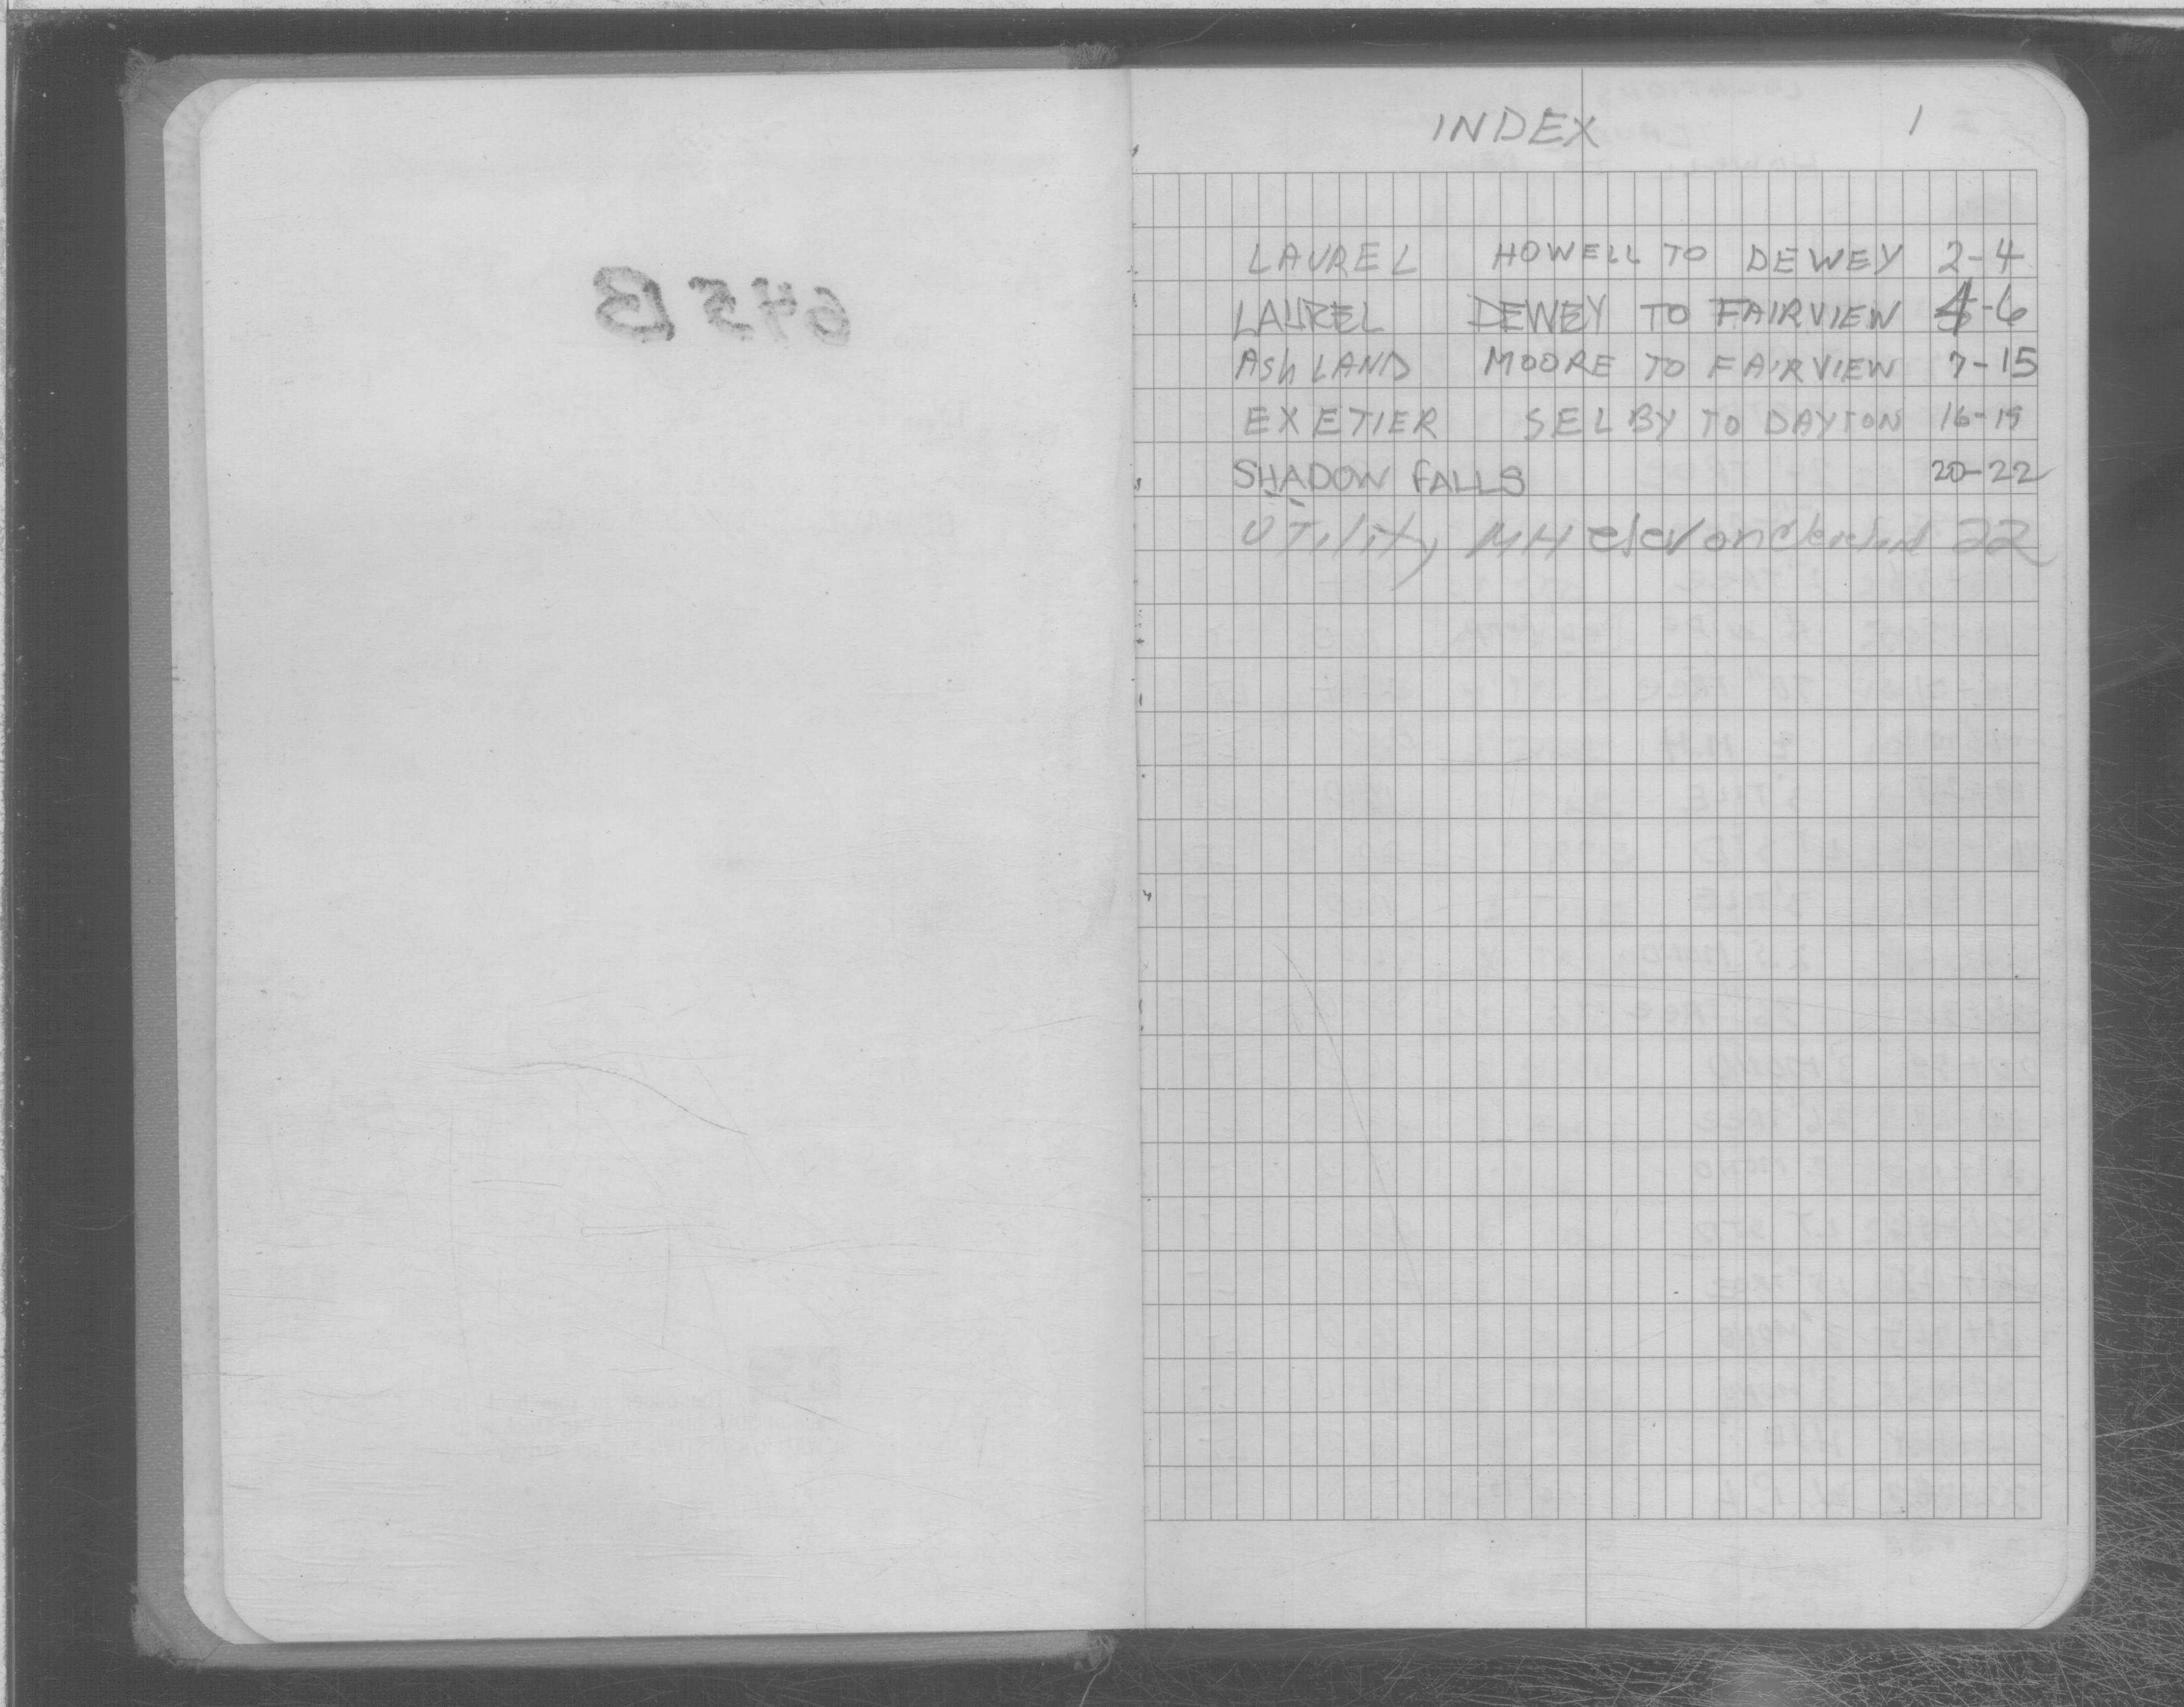 645B
INDEX 1
LAUREL HOWELL TO DEWEY 2-4
LAUREL DEWEY TO FAIRVIEW 4-6
AshLAND MOORE TO FAIRVIEW 7-15
EXETIER SELBY TO DAYTON 16-19
SHADOW FALLS 20-22
UTility MH elev on 22